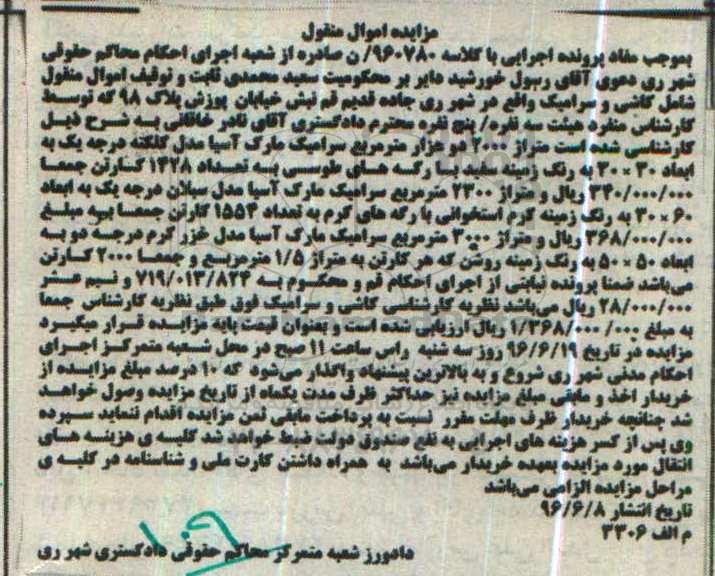 مزایده اموال منقول
بموجب مفاد پرونده اجرایی با کلاسه ۹۶۰۷۸۰/ ن صادره از شعبه اجرای احکام محاکم حقوقی
شهر ری دعوی آقای رسول خورشید دایر بر محکومیت سعید محمدی ثابت و توقیف اموال منقول
شامل کاشی و سرامیک واقع در شهر ری جاده قدیم قم نبش خیابان پوزش پلاک ۹۸ که توسط
کارشناس منفرد هیئت سه نفره/ پنج نفره محترم دادگستری آقای نادر خاقانی به شرح ذیل
کارشناسی شده است متراژ ۲۰۰۰ دو هزار مترمربع سرامیک مارک آسیا مدل کلکته درجه یک به
ابعاد ۳۰×۳۰ به رنگ زمینه سفید با رگه های طوسی به تعداد ۱۳۲۸ کارتن جمعا
۳۴۰/۰۰۰/۰۰۰ ریال و متراژ ۲۳۰۰ مترمربع سرامیک مارک آسیا مدل سیلان درجه یک به ابعاد
۶۰×۳۰ به رنگ زمینه کرم استخوانی با رگه های کرم به تعداد ۱۵۵۳ کارتن جمعا به مبلغ
۳۶۸/۰۰۰/۰۰۰ ریال و متراژ ۳۰۰۰ مترمربع سرامیک مارک آسیا مدل خزر کرم درجه دو به
ابعاد ۵۰×۵۰ به رنگ زمینه روشن که هر کارتن به متراژ ۱/۵ مترمربع و جمعا ۲۰۰۰ کارتن
می‌باشد ضمنا پرونده نیابتی از اجرای احکام قم و محکوم به ۷۱۹/۰۱۳/۸۲۴ و نیم عشر
۲۸/۰۰۰/۰۰۰ ریال می‌باشد نظریه کارشناسی کاشی و سرامیک فوق طبق نظریه کارشناس جمعا
به مبلغ ۱/۳۶۸/۰۰۰/۰۰۰ ریال ارزیابی شده است و بعنوان قیمت پایه مزایده قرار میگیرد
مزایده در تاریخ ۹۶/۶/۱۹ روز سه شنبه راس ساعت ۱۱ صبح در محل شعبه متمرکز اجرای
احکام مدنی شهر ری شروع و به بالاترین پیشنهاد واگذار می‌شود که ۱۰ درصد مبلغ مزایده از
خریدار اخذ و مابقی مبلغ مزایده نیز حداکثر ظرف مدت یکماه از تاریخ مزایده وصول خواهد
شد چنانچه خریدار ظرف مهلت مقرر نسبت به پرداخت مابقی ثمن مزایده اقدام ننماید سپرده
وی پس از کسر هزینه های اجرایی به نفع صندوق دولت ضبط خواهد شد کلیه ی هزینه های
انتقال مورد مزایده بعهده خریدار می‌باشد به همراه داشتن کارت ملی و شناسنامه در کلیه ی
مراحل مزایده الزامی می‌باشد
تاریخ انتشار ۹۶/۶/۸
م الف ۳۳۰۶
دادورز شعبه متمرکز محاکم حقوقی دادگستری شهر ری